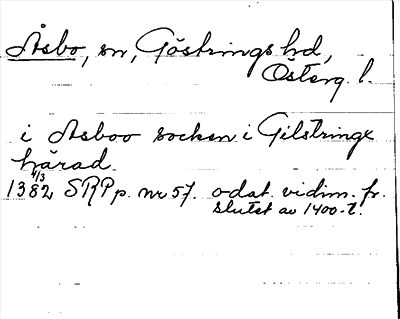 Åsbo, sn, Göstrings hd,
Österg. l.
i Asboo socken i Gilstringe
härad.
4/3
1382 SRPp. nr 57. odat. vidim. fr.
slutet av 1400-t.